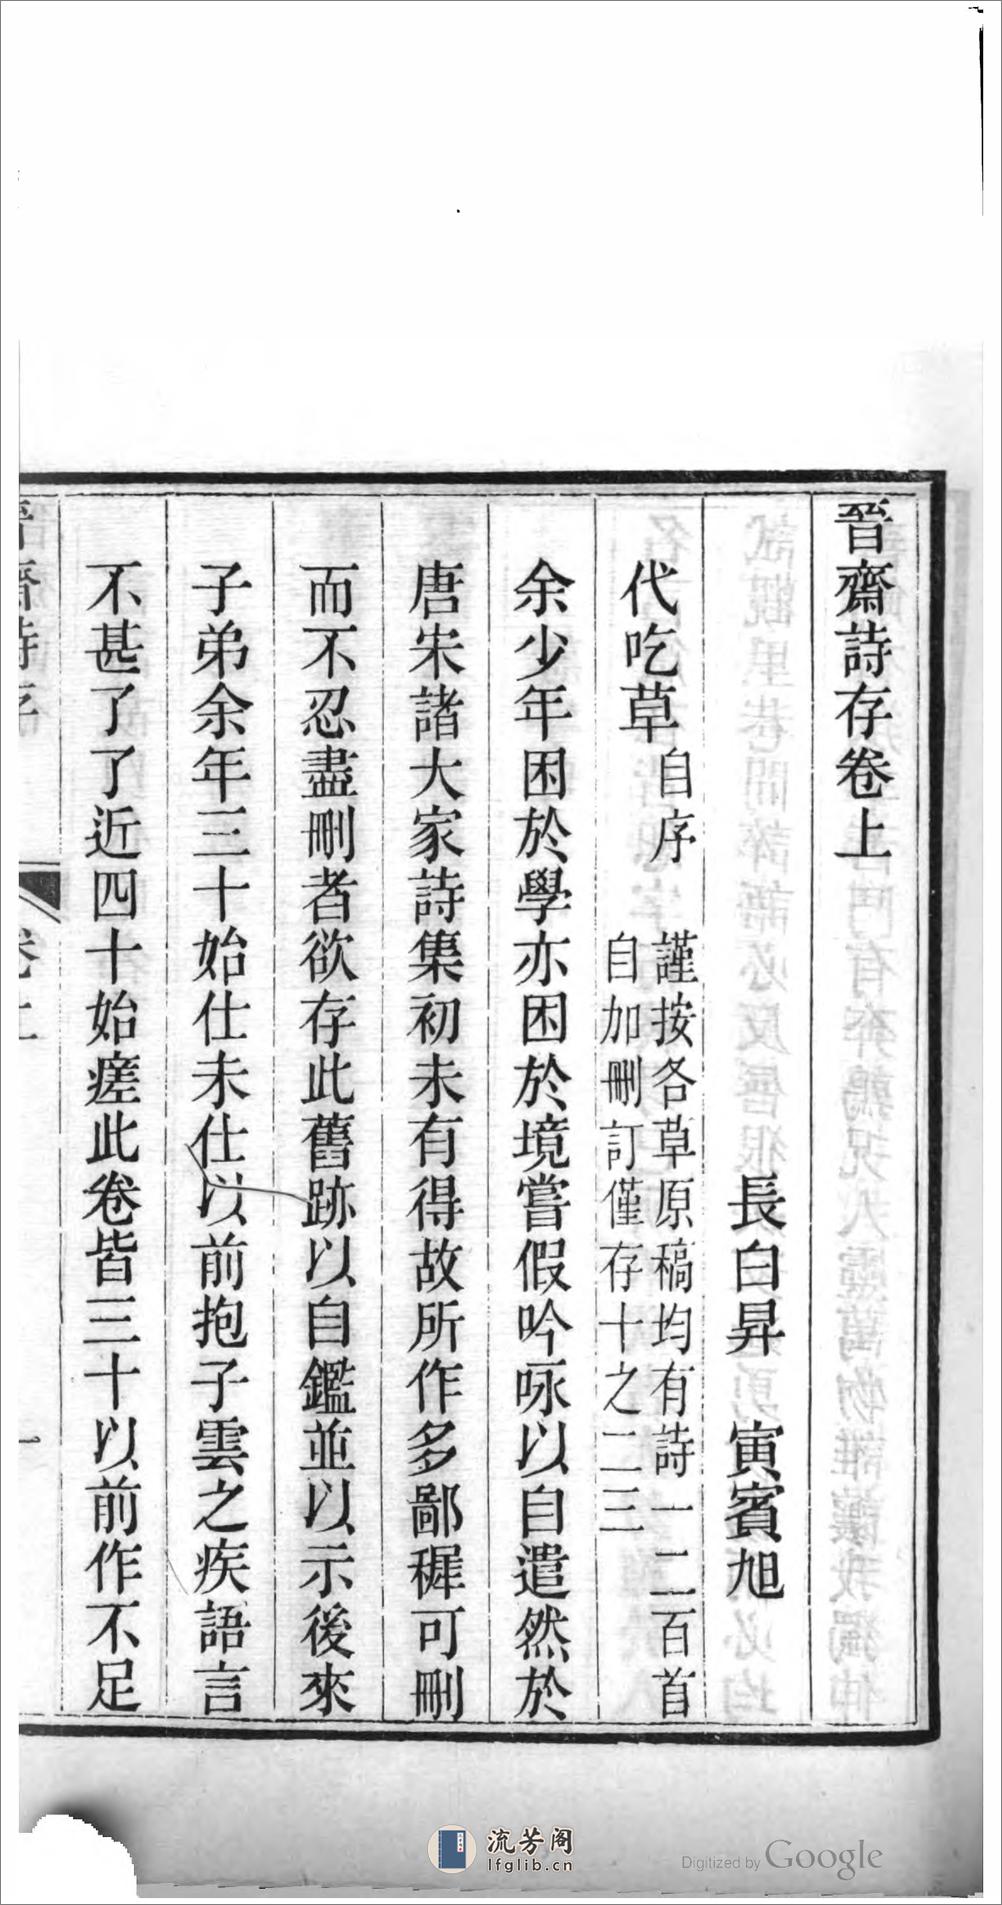 晉齋詩存卷上
長白昇 寅賓旭
代吃草自序 謹按各草原稿均有詩一二百首
自加刪訂僅存十之二三
余少年困於學亦困於境嘗假吟咏以自遣然於
唐宋諸大家詩集初未有得故所作多鄙穉可刪
而不忍盡刪者欲存此舊跡以自鑑並以示後來
子弟余年三十始仕未仕以前抱子雲之疾語言
不甚了了近四十始瘥此卷皆三十以前作不足
流芳阁
lfglib.cn
Digitized by Google